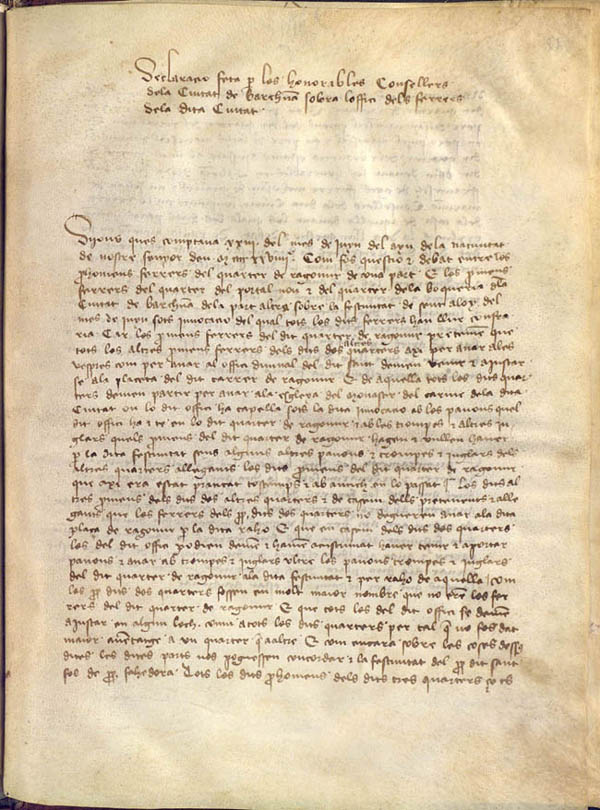 Declaracio feta p los honorables Consellers
dela Ciutat de Barchna sobra loffici dels ferrers
dela dita Ciutat
ques comptava xxiij del mes de juny del any dela nativitat
de nostre senyor den Com fos questio & debat entre los
phomens ferrers del quarter de regomir de una part E los pmens
ferrers del quarter del portal nou & del quarter dela boqueria dla
Ciutat de barchna dela part altra sobre la festivitat de sent aloy del
mes de juny sots invocacio del qual tots los dits ferrers han llur confra
ria Car los pmens ferrers del dit quarter de regomir pretenien que
tots los altres pmens ferrers dels dits dos altres quarters axi per anar ales
vespres com per anar al offici divinal del dit sant devien venir & ajustar
se ala placeta del dit carrer de regomir E de aquella tots los dits quar
ters devien partir per anar ala esglesia del monastir del carme dela dita
Ciutat on lo dit offici ha capella sots la dita invocacio ab los panons quel
dit offici ha & te en lo dit quarter de regomir & ab les trompes & altres ju
glars quels pmens del dit quarter de regomir hagen & vullen haver
p la dita festivitat sens alguns altres panons & trompes & juglars dels
altres quarters allegants los dits pmens del dit quarter de regomir
que axi era estat praticat tostemps & ab antich en lo passat Los dits al
tres pmens dels dits dos altres quarters & de cascun dells pretenents & alle
gants que los ferrers dels pp dits dos quarters no degueren anar ala dita
plaça de regomir p la dita raho E que en cascun dels dits dos quarters
los del dit offici podien devien & havien acustumat haver tenir & aportar
panons & anar ab trompes & juglars ultre los panons trompes & juglars
del dit quarter de regomir ala dita festivitat & per raho de aquella com
los pp dits dos quarters fossen en molt maior nombre que no eren los fer
rers del dit quarter de regomir E que tots los del dit offici se devien
ajustar en algun loch comu a tots los dits quarters per tal q no fos dat
maior avantatge a un quarter q a altre E com encara sobre les coses dess
dites les dites parts nos poguessen concordar & la festivitat del pp dit sant
fos de pp fahedora Tots los dits phomens dels dits tres quarters